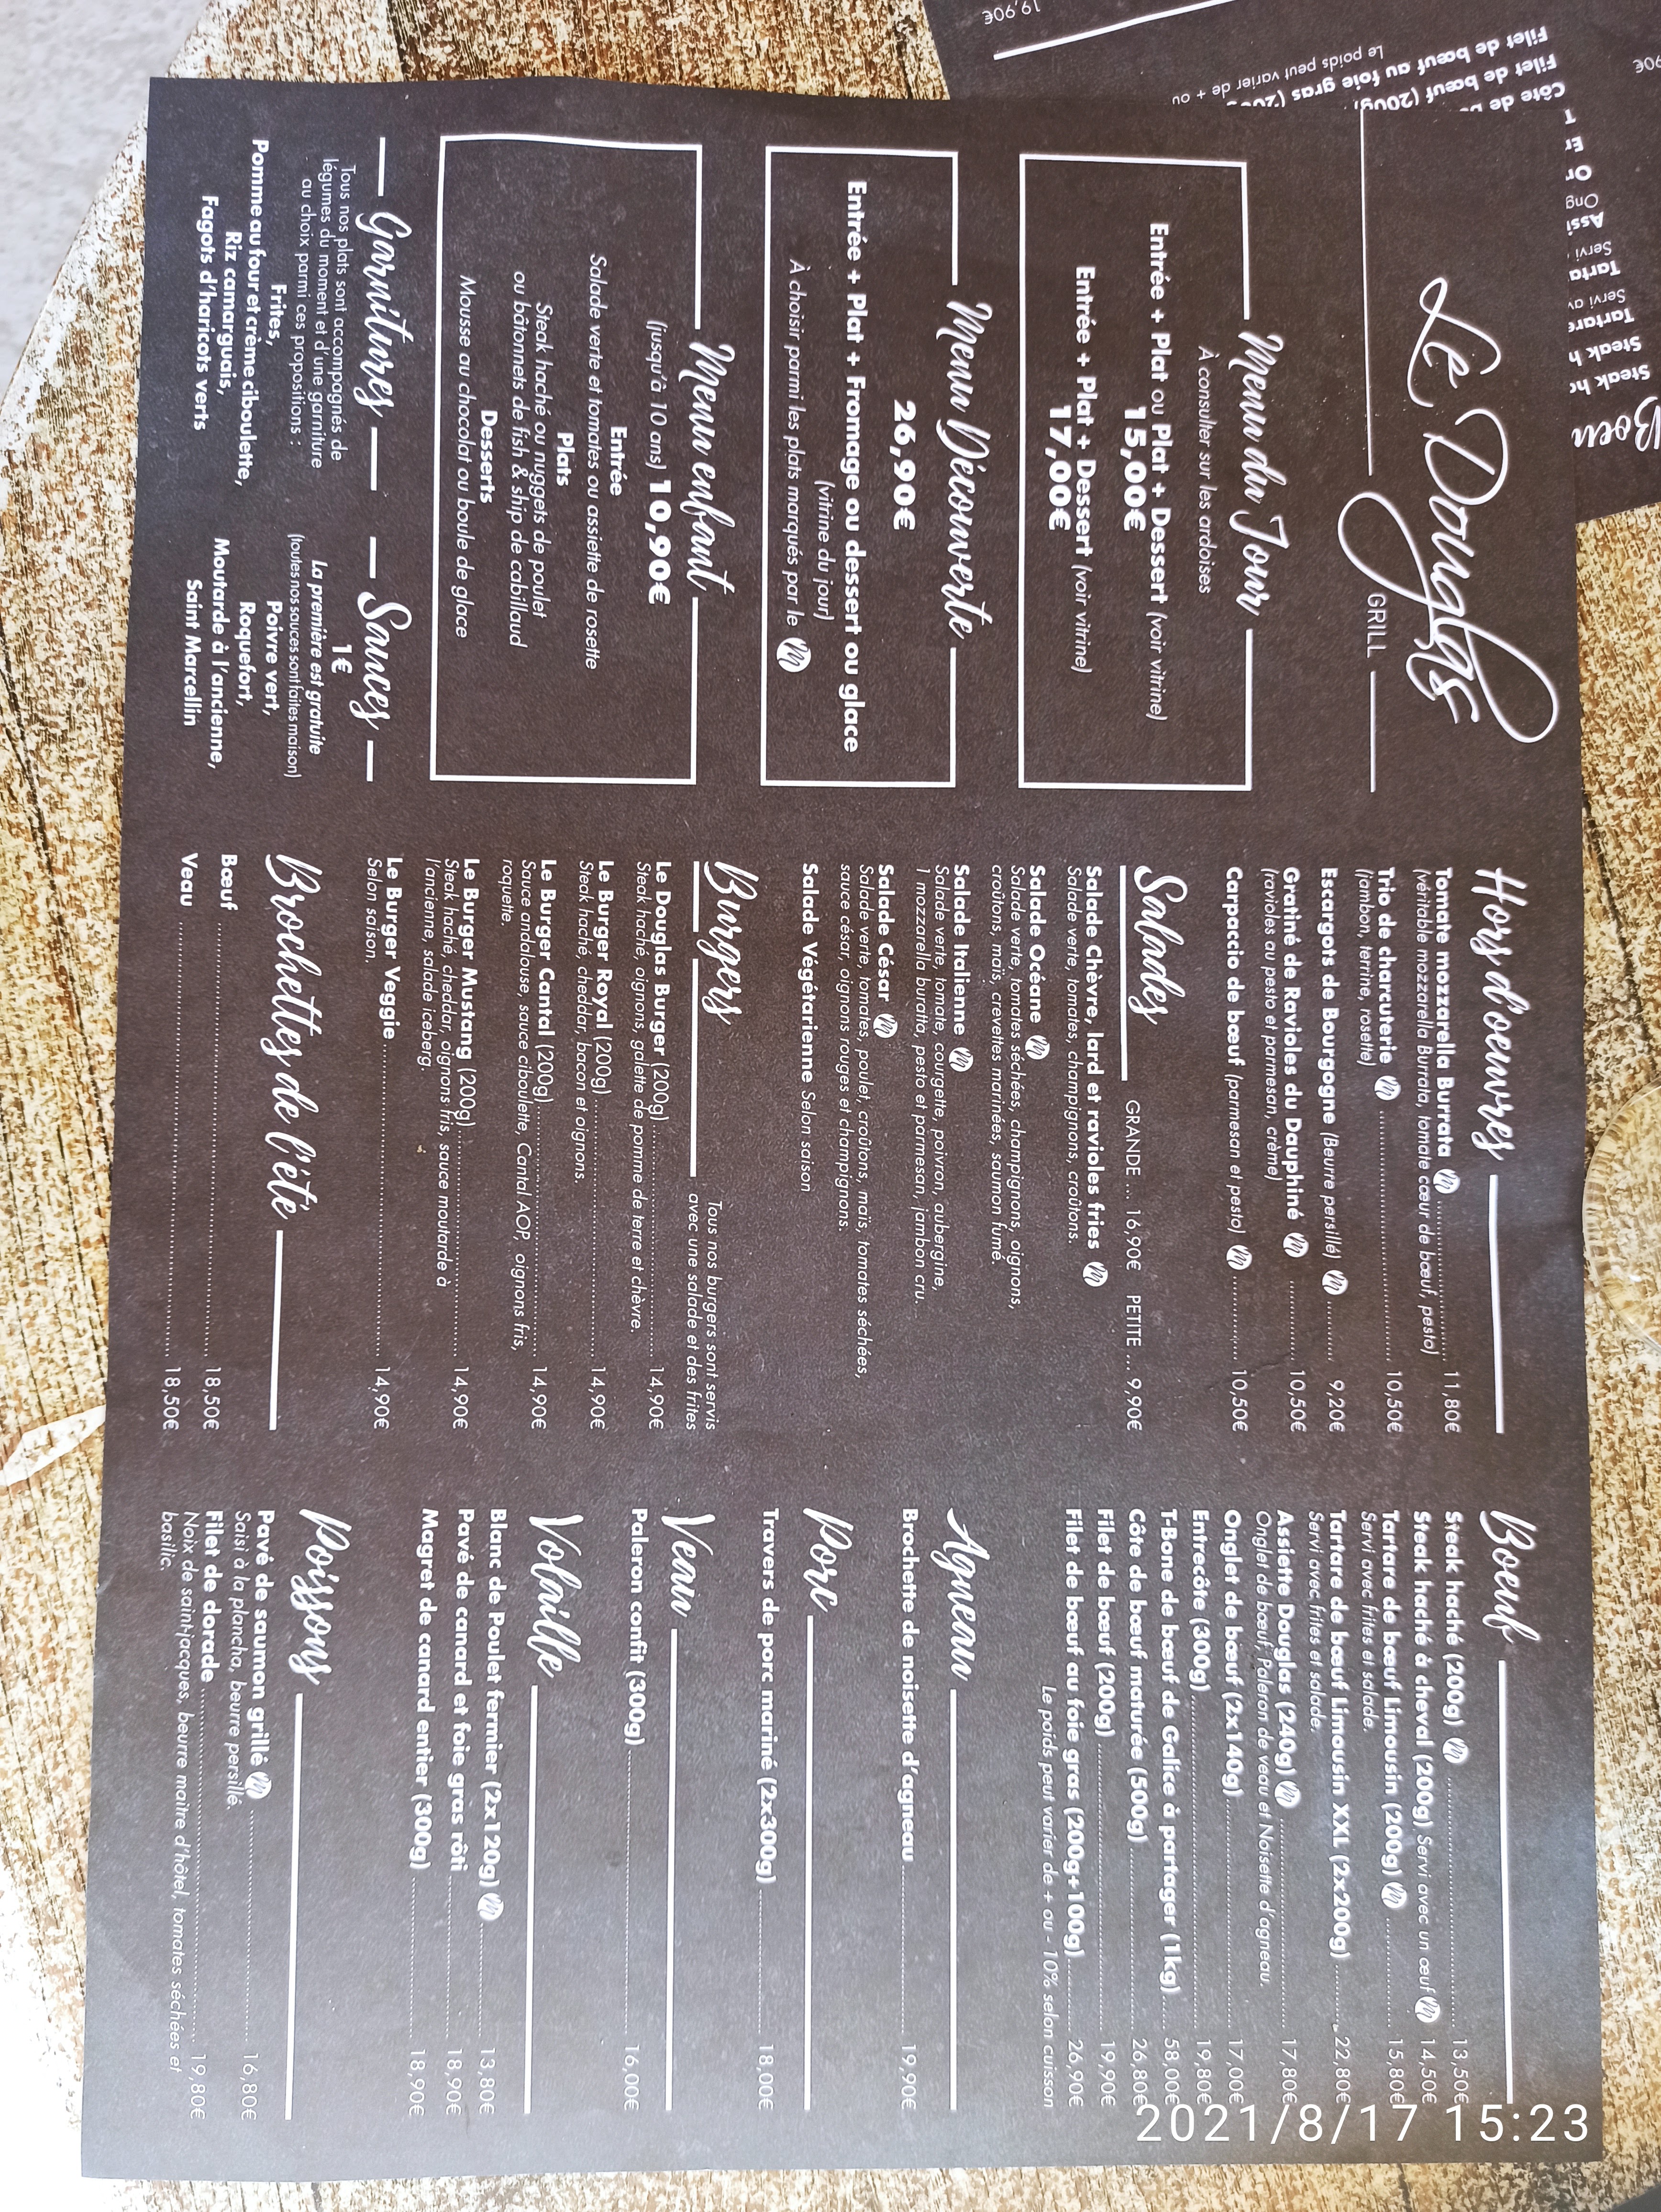 Le Douglas
GRILL
Menu du Jour
À consulter sur les ardoises
Entrée + Plat ou Plat + Dessert (voir vitrine)
15,00€
Entrée + Plat + Dessert (voir vitrine)
17,00€
Menu Découverte
26,90€
Entrée + Plat + Fromage ou dessert ou glace
(vitrine du jour)
À choisir parmi les plats marqués par le M
Menu enfant
(jusqu'à 10 ans) 10,90€
Entrée
Salade verte et tomates ou assiette de rosette
Plats
Steak haché ou nuggets de poulet
ou bâtonnets de fish & ship de cabillaud
Desserts
Mousse au chocolat ou boule de glace
Garnitures
Tous nos plats sont accompagnés de
légumes du moment et d'une garniture
au choix parmi ces propositions :
Frites,
Pomme au four et crème ciboulette,
Riz camarguais,
Fagots d'haricots verts
Sauces
1€
La première est gratuite
(toutes nos sauces sont faites maison)
Poivre vert,
Roquefort,
Moutarde à l'ancienne,
Saint Marcellin
Hors d'oeuvres
Tomate mozzarella Burrata M 11,80€
(véritable mozzarella Burrata, tomate cœur de bœuf, pesto)
Trio de charcuterie M 10,50€
(jambon, terrine, rosette)
Escargots de Bourgogne (Beurre persillé) M 9,20€
Gratiné de Ravioles du Dauphiné M 10,50€
(ravioles au pesto et parmesan, crème)
Carpaccio de bœuf (parmesan et pesto) M 10,50€
Salades GRANDE ... 16,90€ PETITE ... 9,90€
Salade Chèvre, lard et ravioles fries M
Salade verte, tomates, champignons, croûtons.
Salade Océane M
Salade verte, tomates séchées, champignons, oignons,
croûtons, maïs, crevettes marinées, saumon fumé.
Salade Italienne M
Salade verte, tomate, courgette, poivron, aubergine,
1 mozzarella buratta, pesto et parmesan, jambon cru.
Salade César M
Salade verte, tomates, poulet, croûtons, maïs, tomates séchées,
sauce césar, oignons rouges et champignons.
Salade Végétarienne Selon saison
Burgers
Tous nos burgers sont servis
avec une salade et des frites
Le Douglas Burger (200g) 14,90€
Steak haché, oignons, galette de pomme de terre et chèvre.
Le Burger Royal (200g) 14,90€
Steak haché, cheddar, bacon et oignons.
Le Burger Cantal (200g) 14,90€
Sauce andalouse, sauce ciboulette, Cantal AOP, oignons fris,
roquette.
Le Burger Mustang (200g) 14,90€
Steak haché, cheddar, oignons fris, sauce moutarde à
l'ancienne, salade iceberg.
Le Burger Veggie 14,90€
Selon saison.
Brochettes de l'été
Bœuf 18,50€
Veau 18,50€
Boeuf
Steak haché (200g) M 13,50€
Steak haché à cheval (200g) Servi avec un œuf M 14,50€
Tartare de bœuf Limousin (200g) M 15,80€
Servi avec frites et salade.
Tartare de bœuf Limousin XXL (2x200g) 22,80€
Servi avec frites et salade.
Assiette Douglas (240g) M 17,80€
Onglet de bœuf, Paleron de veau et Noisette d'agneau.
Onglet de bœuf (2x140g) 17,00€
Entrecôte (300g) 19,80€
T-Bone de bœuf de Galice à partager (1kg) 58,00€
Côte de bœuf maturée (500g) 26,80€
Filet de bœuf (200g) 19,90€
Filet de bœuf au foie gras (200g+100g) 26,90€
Le poids peut varier de + ou - 10% selon cuisson
Agneau
Brochette de noisette d'agneau 19,90€
Porc
Travers de porc mariné (2x300g) 18,00€
Veau
Paleron confit (300g) 16,00€
Volaille
Blanc de Poulet fermier (2x120g) M 13,80€
Pavé de canard et foie gras rôti 18,90€
Magret de canard entier (300g) 18,90€
Poissons
Pavé de saumon grillé M 16,80€
Saisi à la plancha, beurre persillé.
Filet de dorade 19,80€
Noix de saint-jacques, beurre maitre d'hôtel, tomates séchées et
basilic.
Boeu
Steak ha
Steak h
Tartare
Servi av
Tarta
Servi
Assi
Ong
Or
Er
T
Côte de b
Filet de bœuf (200g
Filet de bœuf au foie gras (20
Le poids peut varier de + ou
19,90€
90€
2021/8/17 15:23